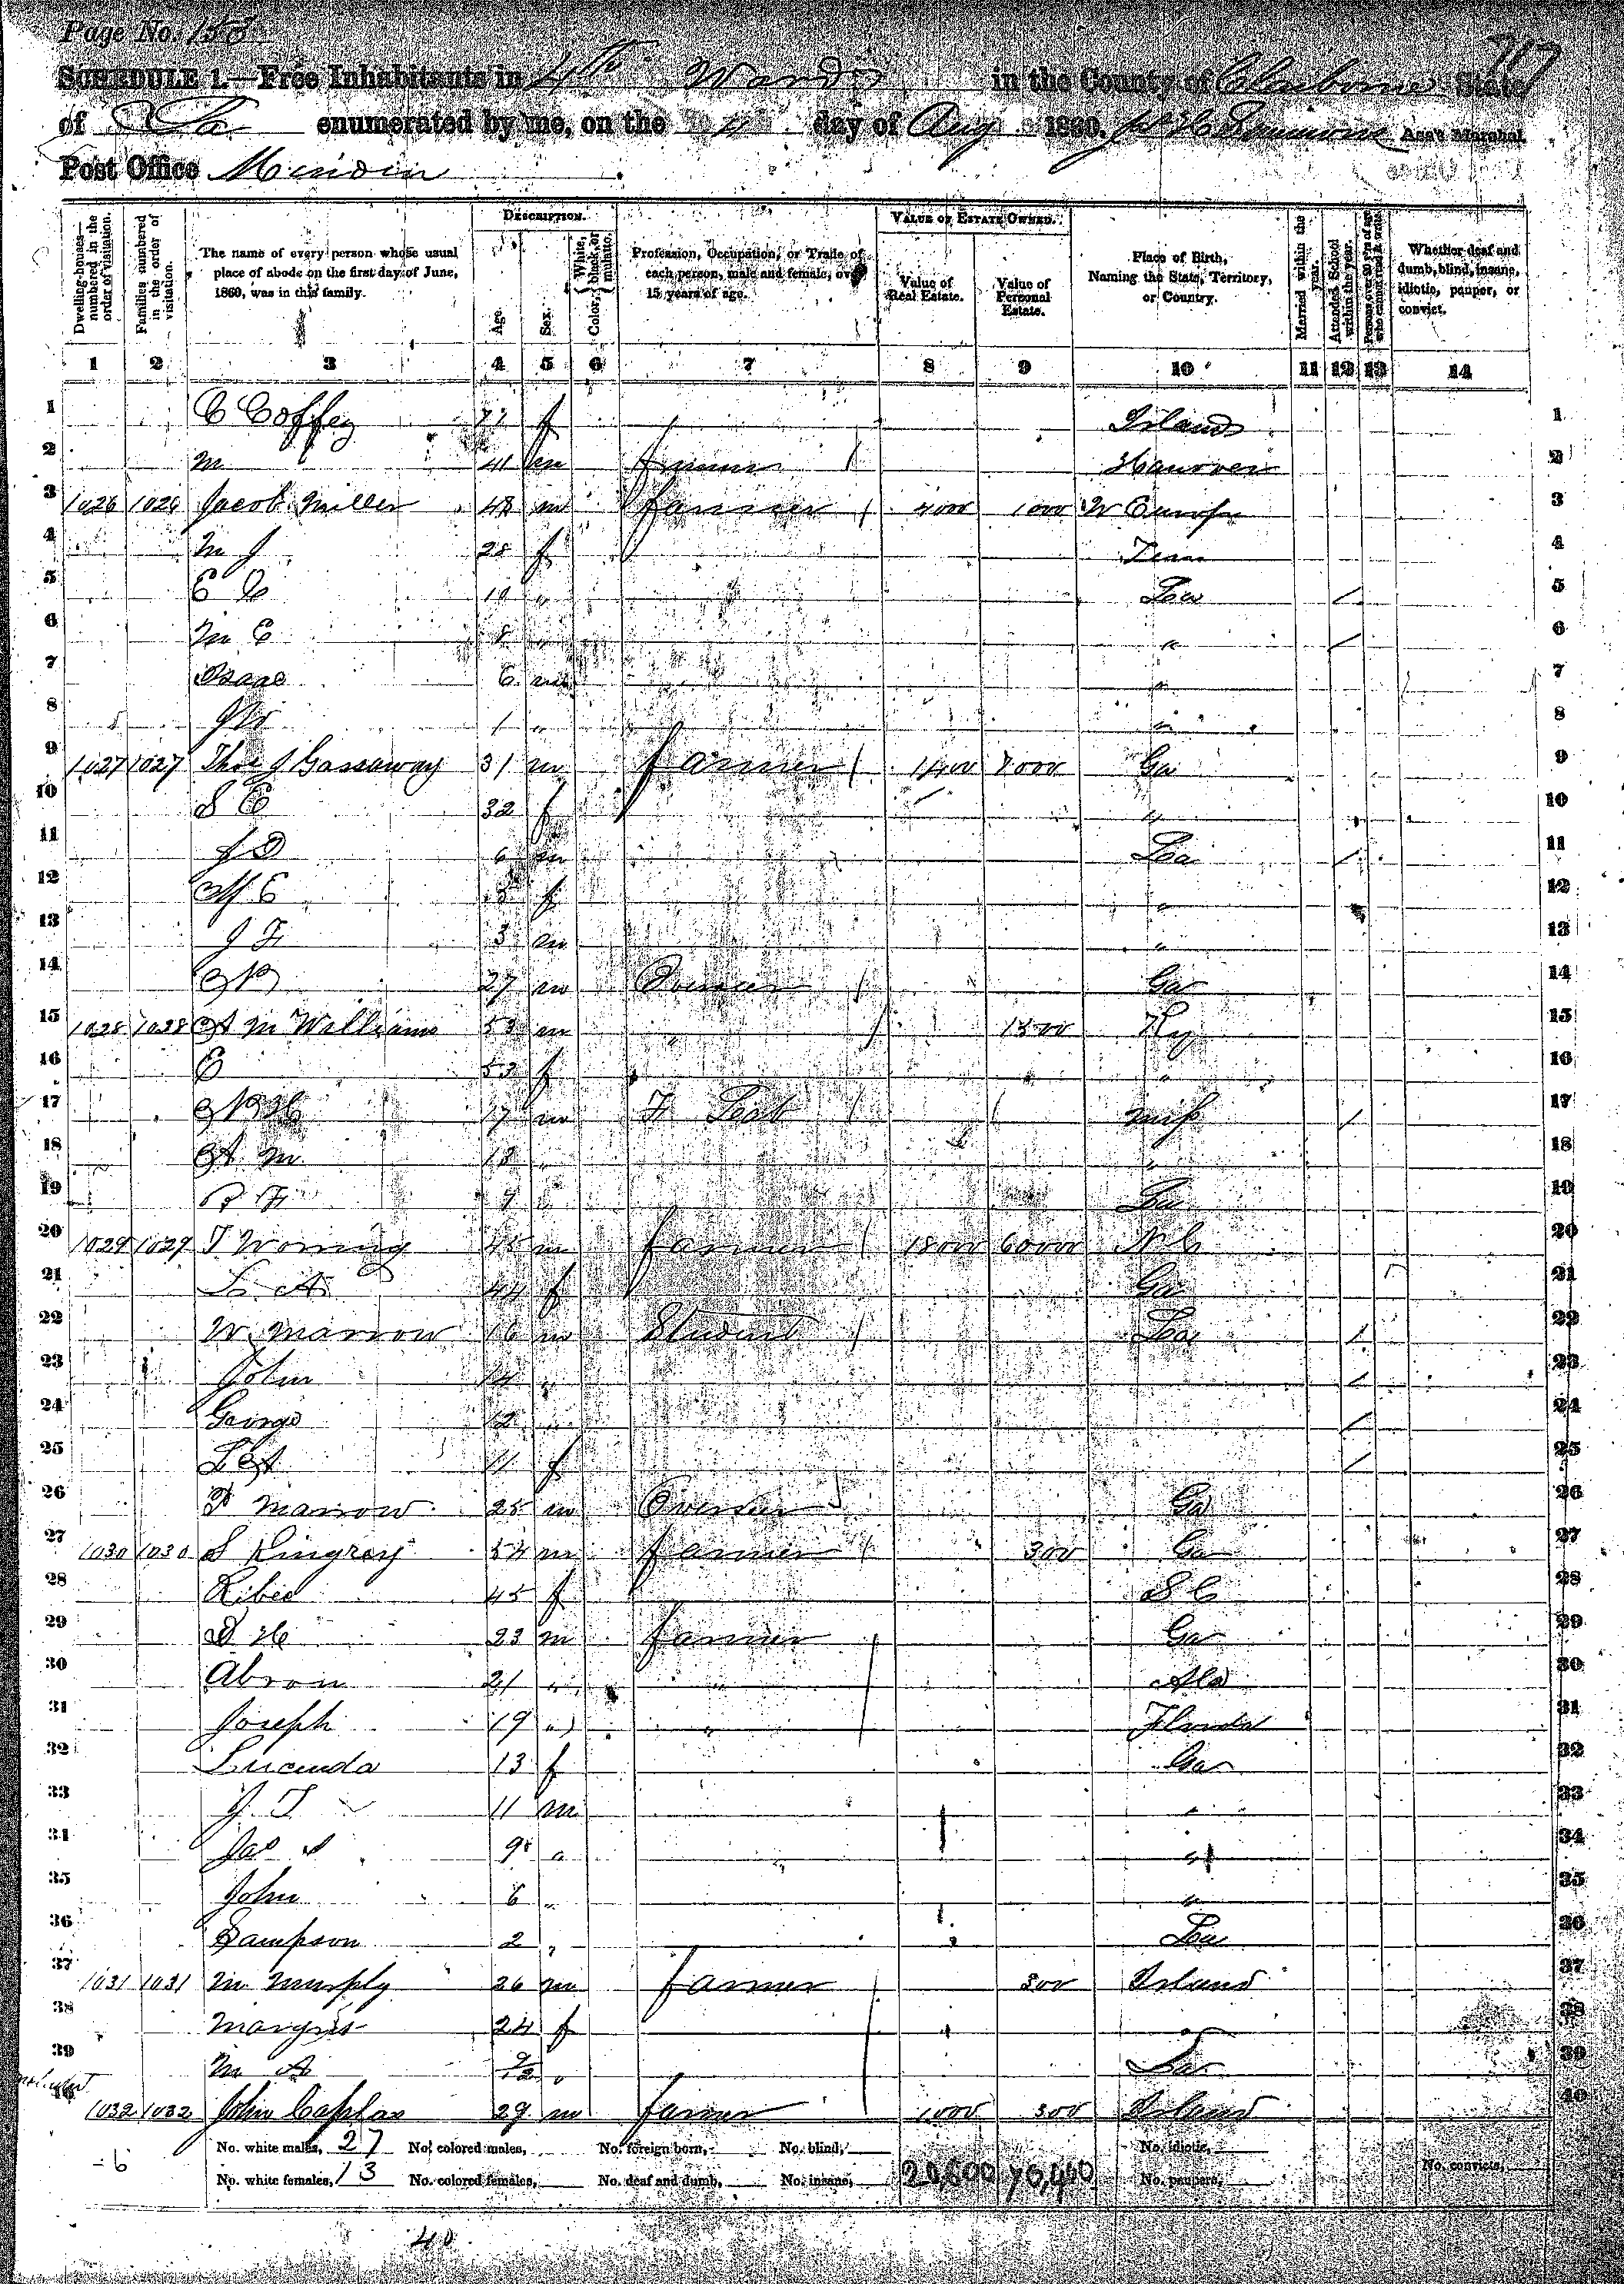 Page No. 153
SCHEDULE 1.—Free Inhabitants in 4th Ward in the County of Claiborne State
of La enumerated by me, on the 4 day of Aug 1860. Ass't Marshal.
Post Office Minden
Dwelling-houses—numbered in the order of visitation.
Families numbered in the order of visitation.
The name of every person whose usual place of abode on the first day of June, 1860, was in this family.
DESCRIPTION.
Age.
Sex.
Color, { White, black, or mulatto.
Profession, Occupation, or Trade of each person, male and female, over 15 years of age.
VALUE OF ESTATE OWNED.
Value of Real Estate.
Value of Personal Estate.
Place of Birth, Naming the State, Territory, or Country.
Married within the year.
Attended School within the year.
Persons over 20 y'rs of age who cannot read & write.
Whether deaf and dumb, blind, insane, idiotic, pauper, or convict.
1 2 3 4 5 6 7 8 9 10 11 12 13 14
1 C Coffey f Irland 1
2 m 41 m farmer Hanover 2
3 1026 1026 Jacob Miller 48 m farmer 4000 1000 W Europe 3
4 M J 28 f Tenn 4
5 E 10 " Lou / 5
6 M E 8 " " / 6
7 Isaac 6 m " 7
8 J W 1 " " 8
9 1027 1027 Thos J Gassaway 31 m farmer 1400 7000 Ga 9
10 S E 32 f " 10
11 J D 6 m Lou / 11
12 M E f " 12
13 J F 3 m " 13
14 27 m Ga 14
15 1028 1028 A M Williams 53 m " 1500 Ky 15
16 E 53 f " 16
17 17 m F Lab Miss / 17
18 A M " " 18
19 F 9 " Lou 19
20 1029 1029 T 45 m farmer 18000 60000 N C 20
21 L A 44 f Ga 21
22 W Marrow 16 m Student Lou / 22
23 John 14 " / 23
24 George 12 " / 24
25 L A 11 f / 25
26 Marrow 25 m Overseer Ga 26
27 1030 1030 S Kingrey 54 m farmer 300 Ga 27
28 Ribec 45 f S C 28
29 D H 23 m farmer Ga 29
30 Abron 21 " " Ala 30
31 Joseph 19 " " Florida 31
32 Lucinda 13 f Ga 32
33 J T 11 m " 33
34 Jas 9 " " 34
35 John 6 " " 35
36 Sampson 2 " Lou 36
37 1031 1031 M Murphy 26 m farmer 300 Irland 37
38 Margret 24 f " 38
39 M A 9/12 " Lou 39
40 1032 1032 John 29 m farmer 1000 300 Irland 40
No. white males, 27 No. colored males, No. foreign born, No. blind, No. idiotic,
No. white females, 13 No. colored females, No. deaf and dumb, No. insane, No. paupers, No. convicts,
-6
40